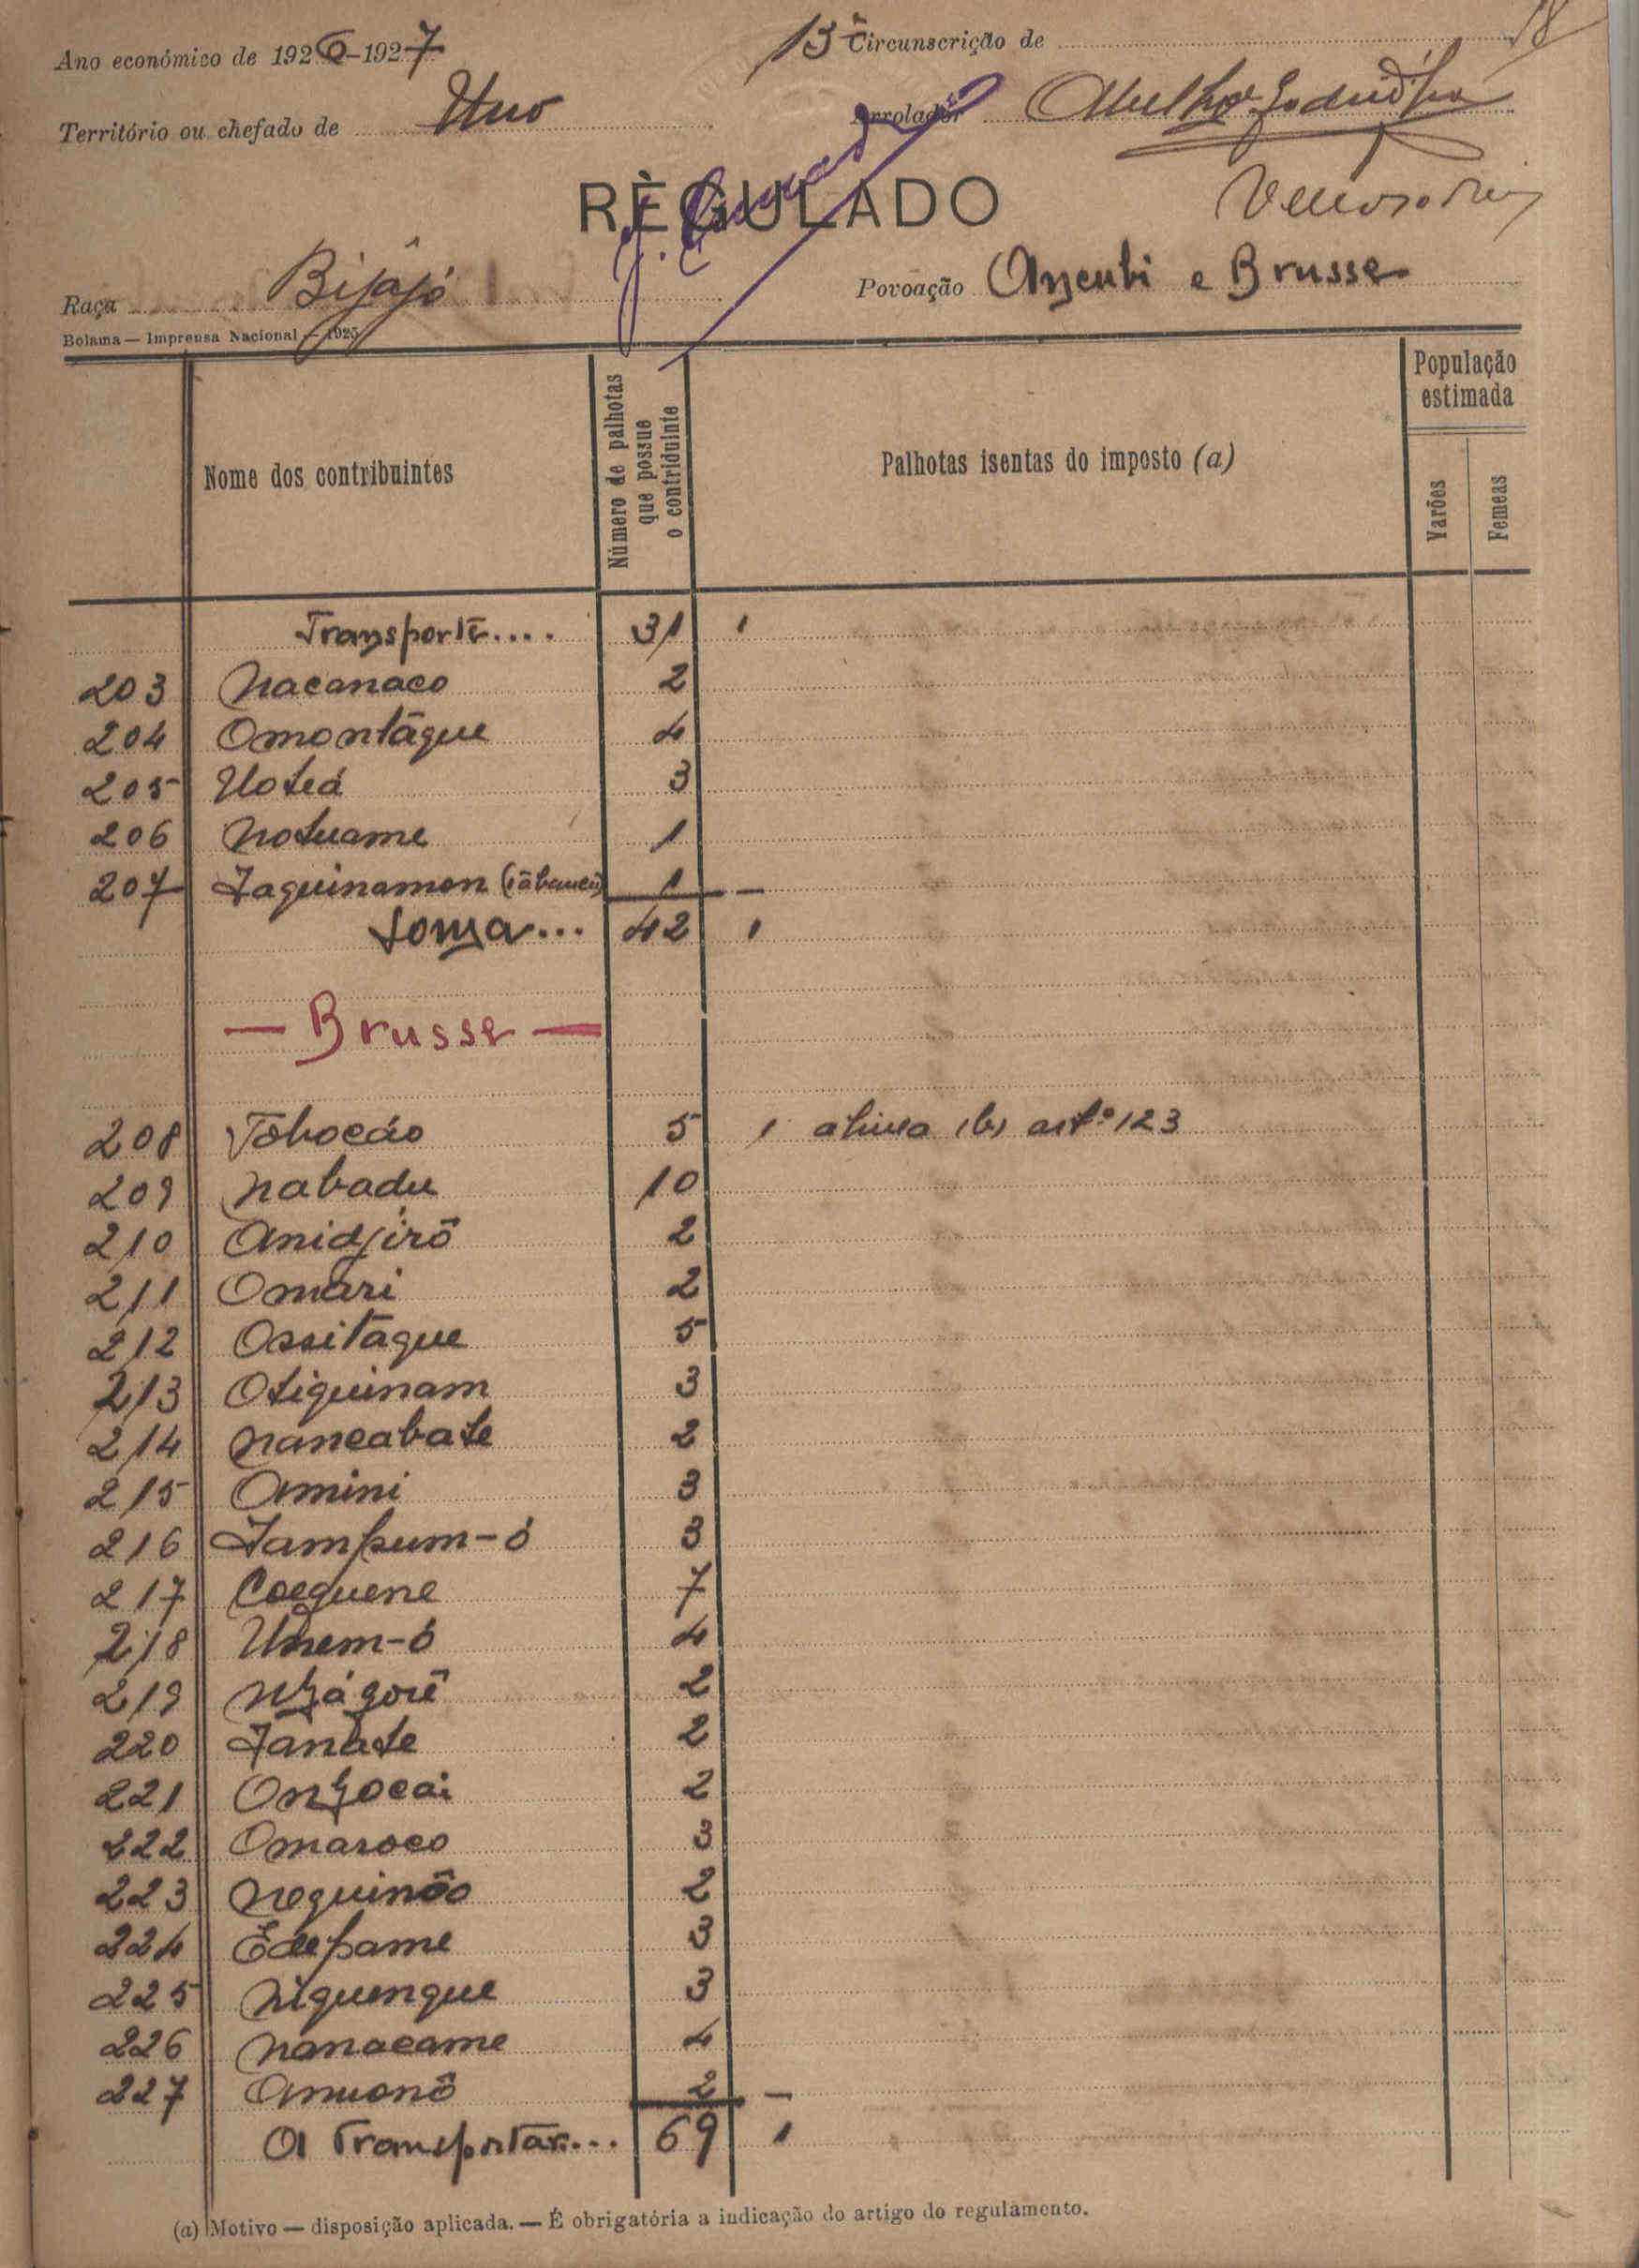 18
Ano económico de 1926-1927
13ª Circunscrição de
Território ou chefado de Uno
Arrolador
RÈGULADO
Raça Bijajó
Povoação Anzenbi e Brusse
Bolama — Imprensa Nacional — 1925
Nome dos contribuintes
Número de palhotas que possue o contriduinte
Palhotas isentas do imposto (a)
População estimada
Varões
Femeas
Transporte.... 31 1
203 Nacanaco 2
204 Omontāque 4
205 Uoteá 3
206 Notuame 1
207 Jaquinamon 1 —
Soma... 42 1
— Brusse —
208 Tôhocáo 5 1 alinea (b) artº 123
209 Nabadu 10
210 Anidjirô 2
211 Omári 2
212 Ossitaque 5
213 Otiquinam 3
214 Nancabate 2
215 Amini 3
216 Jampum-ó 3
217 Coeguene 7
218 Unem-ó 4
219 Nzágorê 2
220 Janáte 2
221 Onzocai 2
222 Omaroco 3
223 Neguinôo 2
224 Edepame 3
225 Niguengue 3
226 Nanacame 4
227 Anuonô 2 —
A Transportar... 69 1
(a) Motivo — disposição aplicada. — É obrigatória a indicação do artigo do regulamento.